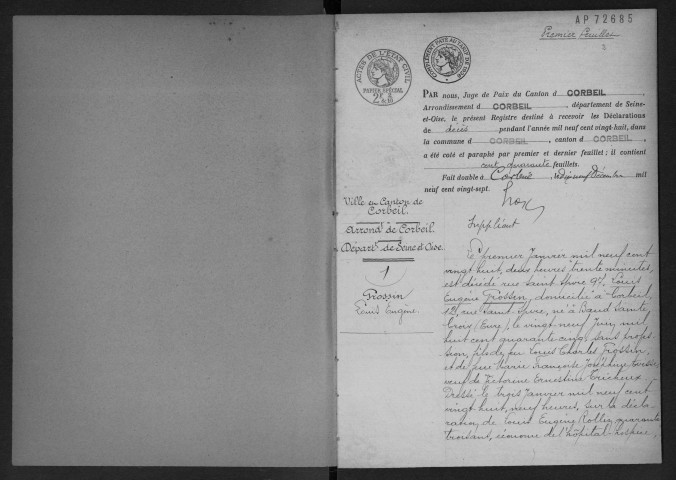 AP 72685
Premier feuillet
ACTES DE L'ÉTAT CIVIL
PAPIER SPÉCIAL
COMPLÉMENT PAYÉ AU TARIF DE
PAR nous, Juge de Paix du Canton d CORBEIL,
Arrondissement d CORBEIL, département de Seine-
et-Oise, le présent Registre destiné à recevoir les Déclarations
de décès pendant l'année mil neuf cent vingt-huit, dans
la commune d CORBEIL, canton d CORBEIL,
a été coté et paraphé par premier et dernier feuillet : il contient
cent quarante feuillets.
Fait double à Corbeil, le dix neuf Décembre mil
neuf cent vingt-sept.
Suppléant
Ville en Canton de
Corbeil.
Arrond.t de Corbeil.
Départ.t de Seine et Oise.
1
Grossin
Louis Eugène.
Le premier Janvier mil neuf cent
vingt huit, deux heures trente minutes,
est décédé rue Saint Spire 97, Louis
Eugène Grossin, domicilié à Corbeil,
12, rue Saint Spire, né à Bazu Sainte
Croix (Eure), le vingt neuf Juin mil
huit cent quarante cinq, sans profes-
sion, fils de feu Louis Charles Grossin,
et de feue Marie Françoise Joséphine
veuf de Victorine Ernestine
Dressé le trois Janvier mil neuf cent
vingt huit, neuf heures, sur la décla-
ration de Louis Eugène Rollin, quarante
trois ans, économe de l'hôpital-hospice,